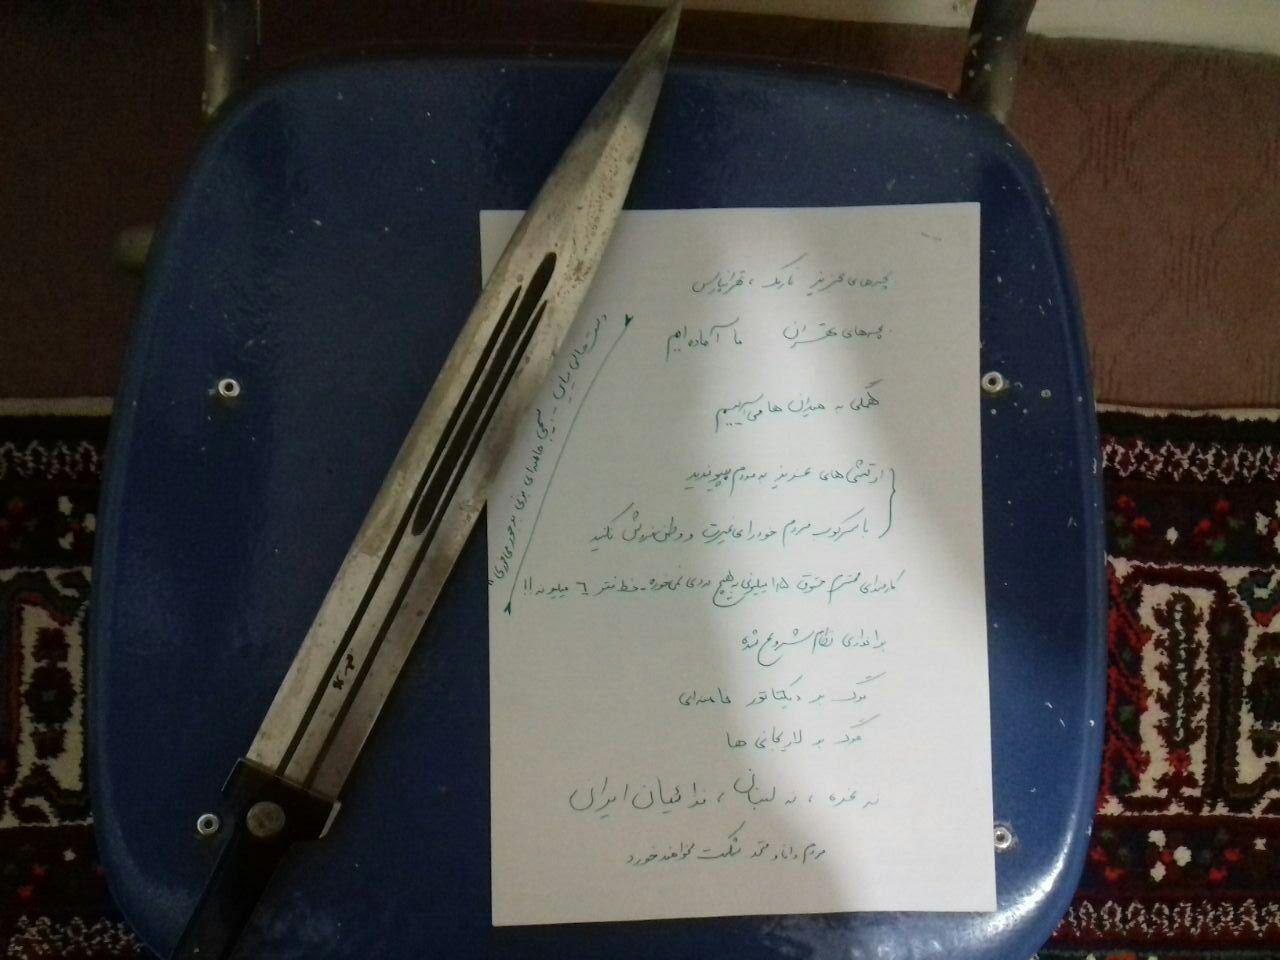 بچه‌های عزیز نازی ، تهرانپارس
بچه‌های تهران ما آماده‌ایم
همگی به میدان ها می‌آییم
ارتشی های عزیز به مردم بپیوندید
با سرکوب مردم خود رای غیرت و وطن فروشی نکنید
کارمندای محترم حقوق ۱/۵ میلیونی به هیچ دردی نمی‌خوره خط فقر ۶ میلیونه !!
براندازی نظام شروع شده
مرگ بر دیکتاتور خامنه‌ای
مرگ بر لاریجانی ها
نه غزه ، نه لبنان ، فدائیان ایران
مردم دانا و متحد شکست نخواهند خورد
دست خالی نیاین